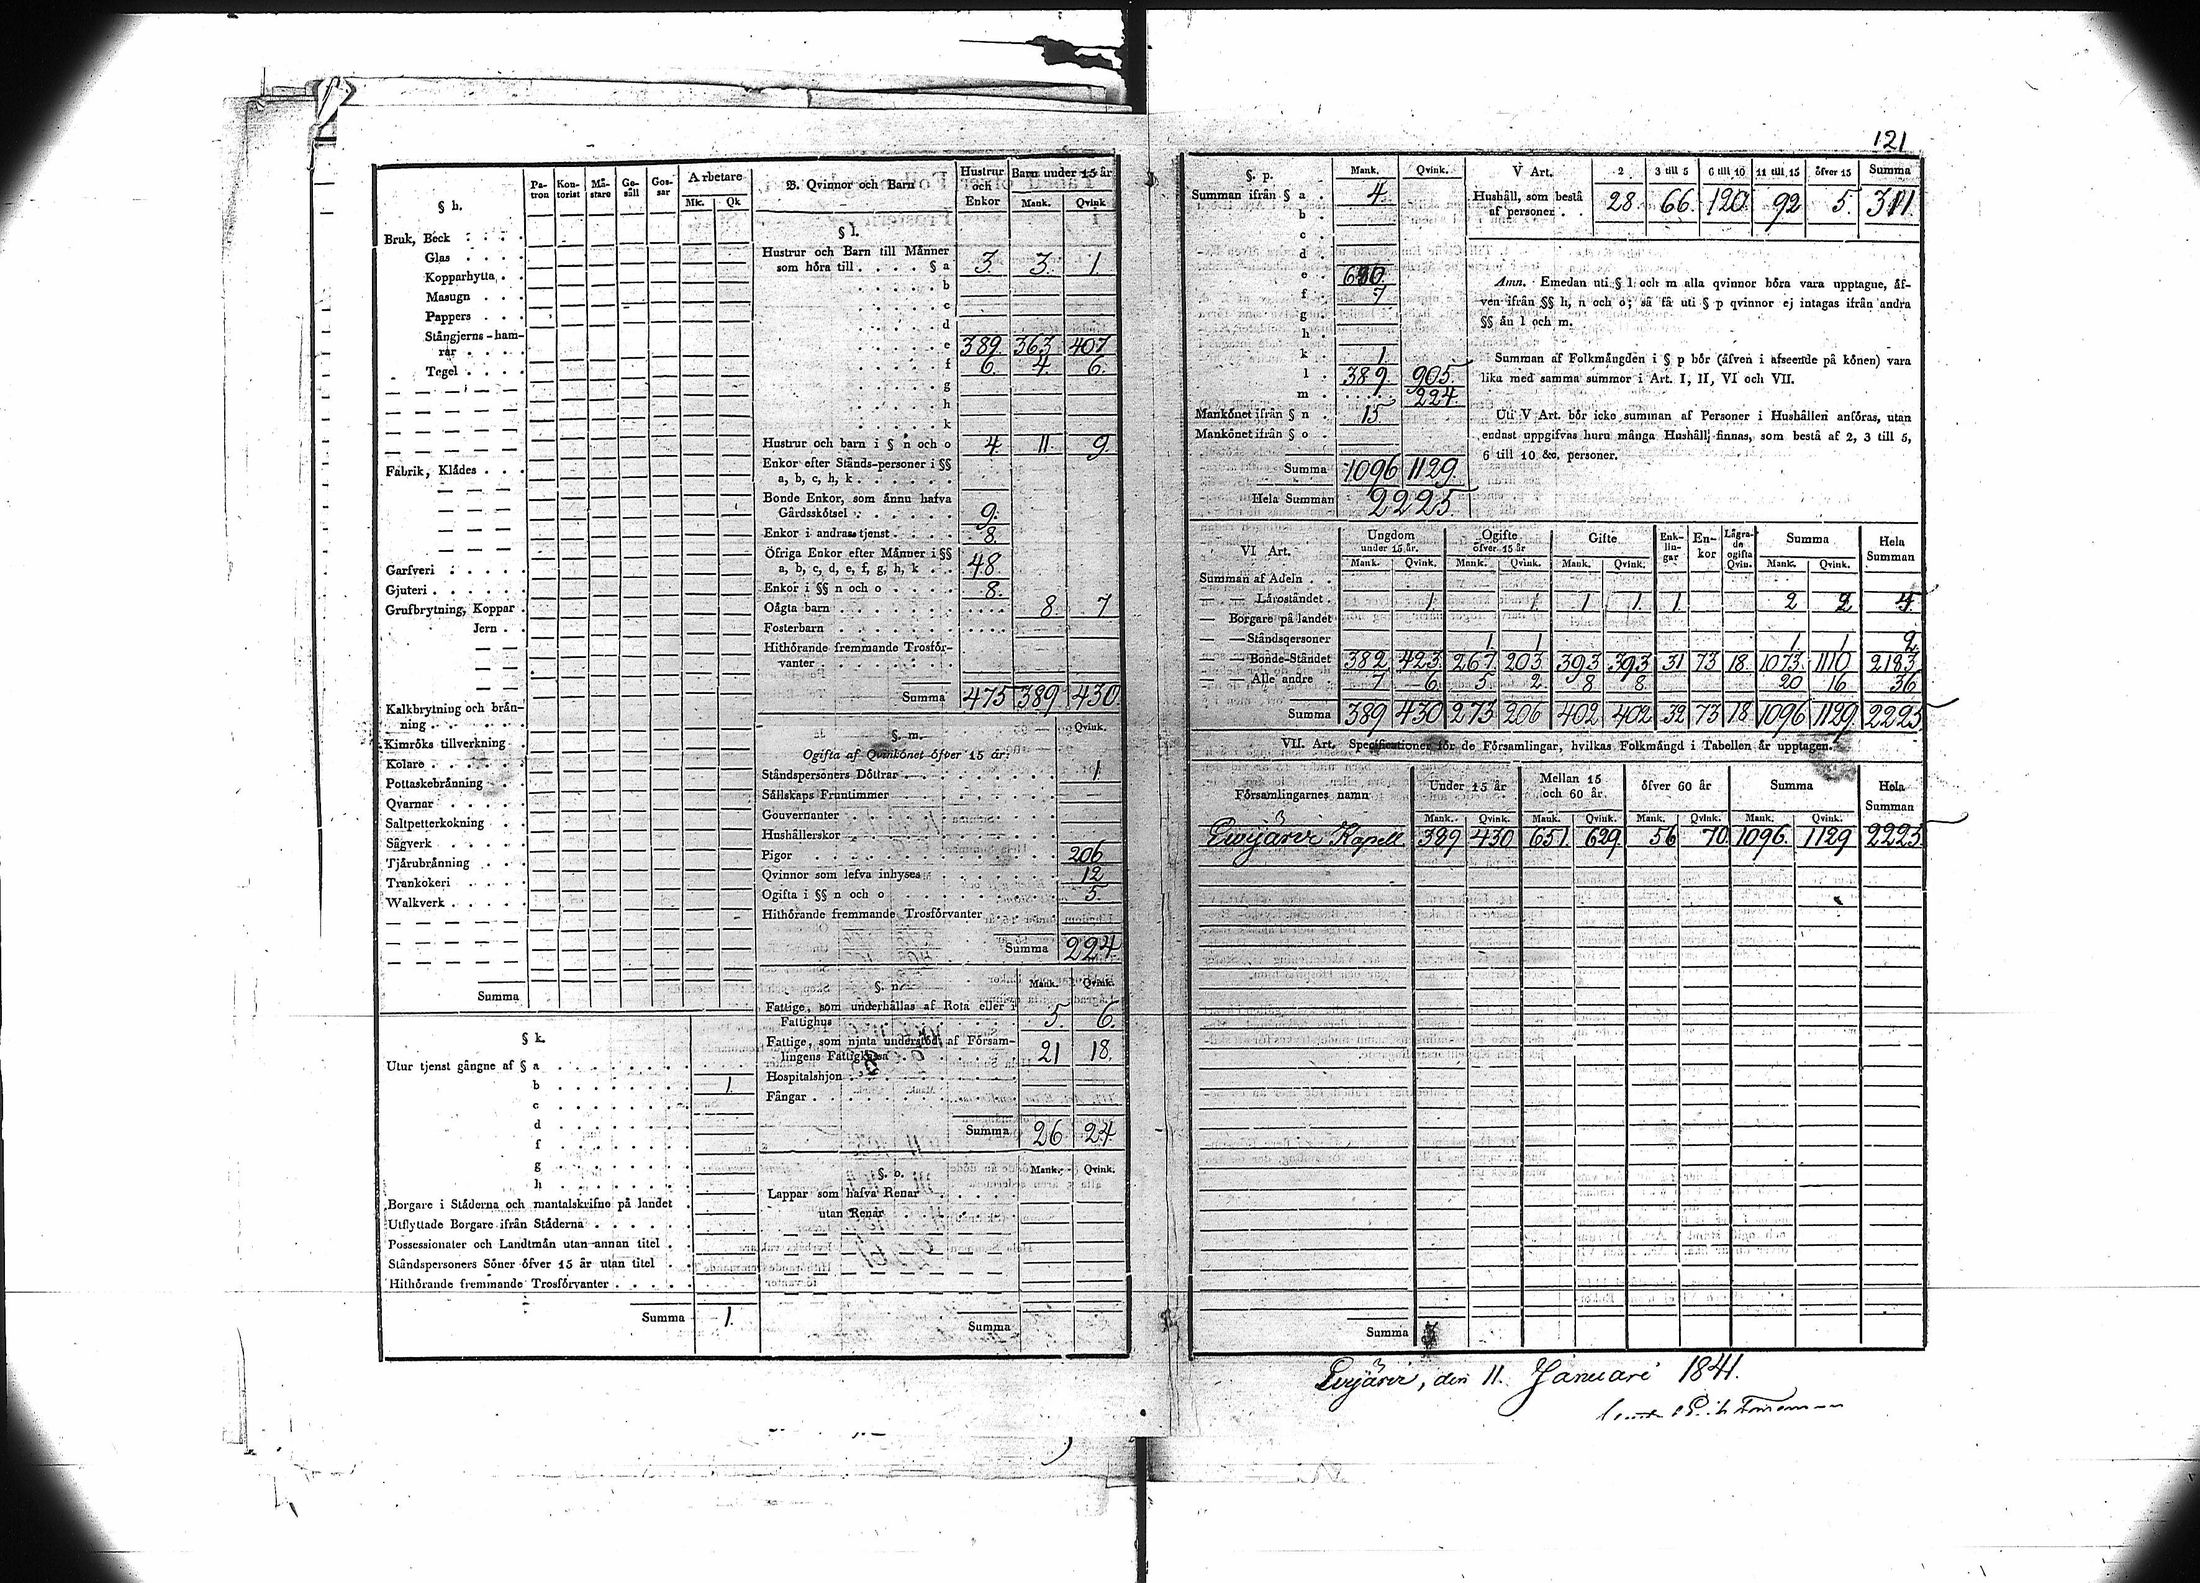 121
§ h.
Pa-tron Kon-torist Må-stare Ge-säll Gos-sar Arbetare
Mk. Qk
Bruk, Beck
Glas
Kopparhytta
Masugn
Pappers
Stångjerns-ham-
rar
Tegel
Fabrik, Klädes
Garfveri
Gjuteri
Grufbrytning, Koppar
Jern
Kalkbrytning och brän-
ning
Kimröks tillverkning
Kolare
Pottaskebränning
Qvarnar
Saltpetterkokning
Sågverk
Tjärubränning
Trankokeri
Walkverk
Summa
§ k.
Utur tjenst gångne af § a
b 1.
c
d
f
g
h
Borgare i Städerna och mantalskrifne på landet
Utflyttade Borgare ifrån Städerna
Possessionater och Landtmän utan annan titel
Ståndspersoners Söner öfver 15 år utan titel
Hithörande fremmande Trosförvanter
Summa 1.
B. Qvinnor och Barn
Hustrur och Enkor Barn under 15 år
Mank. Qvink
§ l.
Hustrur och Barn till Männer
som höra till § a 3. 3. 1.
b
c
d
e 389. 363 407
f 6. 4. 6.
g
h
k
Hustrur och barn i § n och o 4. 11. 9.
Enkor efter Stånds-personer i §§
a, b, c, h, k
Bonde Enkor, som ännu hafva
Gårdsskötsel 9.
Enkor i andras tjenst 8.
Öfriga Enkor efter Männer i §§
a, b, c, d, e, f, g, h, k 48
Enkor i §§ n och o 8.
Oägta barn 8. 7
Fosterbarn
Hithörande fremmande Trosför-
vanter
Summa 475 389 430
§. m. Qvink.
Ogifta af Qvinkönet öfver 15 år.
Ståndspersoners Döttrar 1.
Sällskaps Fruntimmer
Gouvernanter
Hushållerskor
Pigor 206
Qvinnor som lefva inhyses 12
Ogifta i §§ n och o 5.
Hithörande fremmande Trosförvanter
Summa 224.
§. n. Mank. Qvink.
Fattige, som underhållas af Rota eller i
Fattighus 5. 6.
Fattige, som njuta understöd af Försam-
lingens Fattigkassa 21 18.
Hospitalshjon
Fångar
Summa 26 24
§. o. Mank. Qvink.
Lappar som hafva Renar
utan Renar
Summa
§. p. Mank. Qvink.
Summan ifrån § a 4.
b
c
d
e 680.
f 7
g
h
k 1.
l 389. 905.
m 224.
Mankönet ifrån § n 15
Mankönet ifrån § o
Summa 1096 1129.
Hela Summan 2225.
V Art. 2 3 till 5 6 till 10 11 till 15 öfver 15 Summa
Hushåll, som bestå
af personer 28. 66. 120. 92 5. 311.
Anm. Emedan uti § l och m alla qvinnor böra vara upptagne, äf-
ven ifrån §§ h, n och o; så få uti § p qvinnor ej intagas ifrån andra
§§ än l och m.
Summan af Folkmängden i § p bör (äfven i afseende på könen) vara
lika med samma summor i Art. I, II, VI och VII.
Uti V Art. bör icke summan af Personer i Hushållen anföras, utan
endast uppgifvas huru många Hushåll finnas, som bestå af 2, 3 till 5,
6 till 10 &c. personer.
VI Art. Ungdom under 15 år. Ogifte öfver 15 år Gifte Enk-lin-gar En-kor Lägra-de ogifta Qvin. Summa Hela Summan
Mank. Qvink. Mank. Qvink. Mank. Qvink. Mank. Qvink.
Summan af Adeln
— — Läroståndet 1. 1. 1 1. 1. 2 2 4
— Borgare på landet
— — Ståndspersoner 1 1 1. 1 2
— — Bonde-Ståndet 382. 423. 267. 203 393 393 31 73 18. 1073. 1110 2183
— — Alle andre 7 6. 5 2. 8 8. 20 16 36
Summa 389 430 273 206 402 402 32 73 18 1096 1129 2225
VII. Art. Specificationer för de Församlingar, hvilkas Folkmängd i Tabellen är upptagen.
Församlingarnes namn Under 15 år Mellan 15 och 60 år. öfver 60 år Summa Hela Summan
Mank. Qvink. Mank. Qvink. Mank. Qvink. Mank. Qvink.
Ewijärvi Kapell 389 430 651. 629. 56 70. 1096. 1129 2225.
Summa
Evijärvi, den 11. Januari 1841.